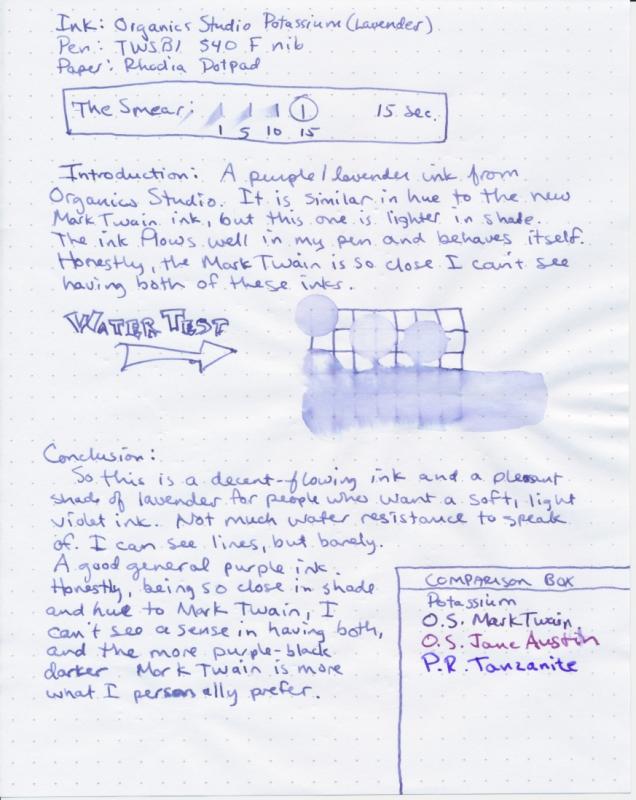 Ink: Organics Studio Potassium (Lavender)
Pen: TWSBI 540 F nib
Paper: Rhodia Dotpad
The Smear: 1 15 sec.
1 5 10 15
Introduction: A purple/lavender ink from
Organics Studio. It is similar in hue to the new
Mark Twain ink, but this one is lighter in shade.
The ink flows well in my pen and behaves itself.
Honestly, the Mark Twain is so close I can't see
having both of these inks.
WATER TEST
Conclusion:
So this is a decent-flowing ink and a pleasant
shade of lavender for people who want a soft, light
violet ink. Not much water resistance to speak
of. I can see lines, but barely.
A good general purple ink.
Honestly, being so close in shade
and hue to Mark Twain, I
can't see a sense in having both,
and the more purple-black
darker Mark Twain is more
what I personally prefer.
COMPARISON BOX
Potassium
O.S. Mark Twain
O.S. Jane Austin
P.R. Tanzanite